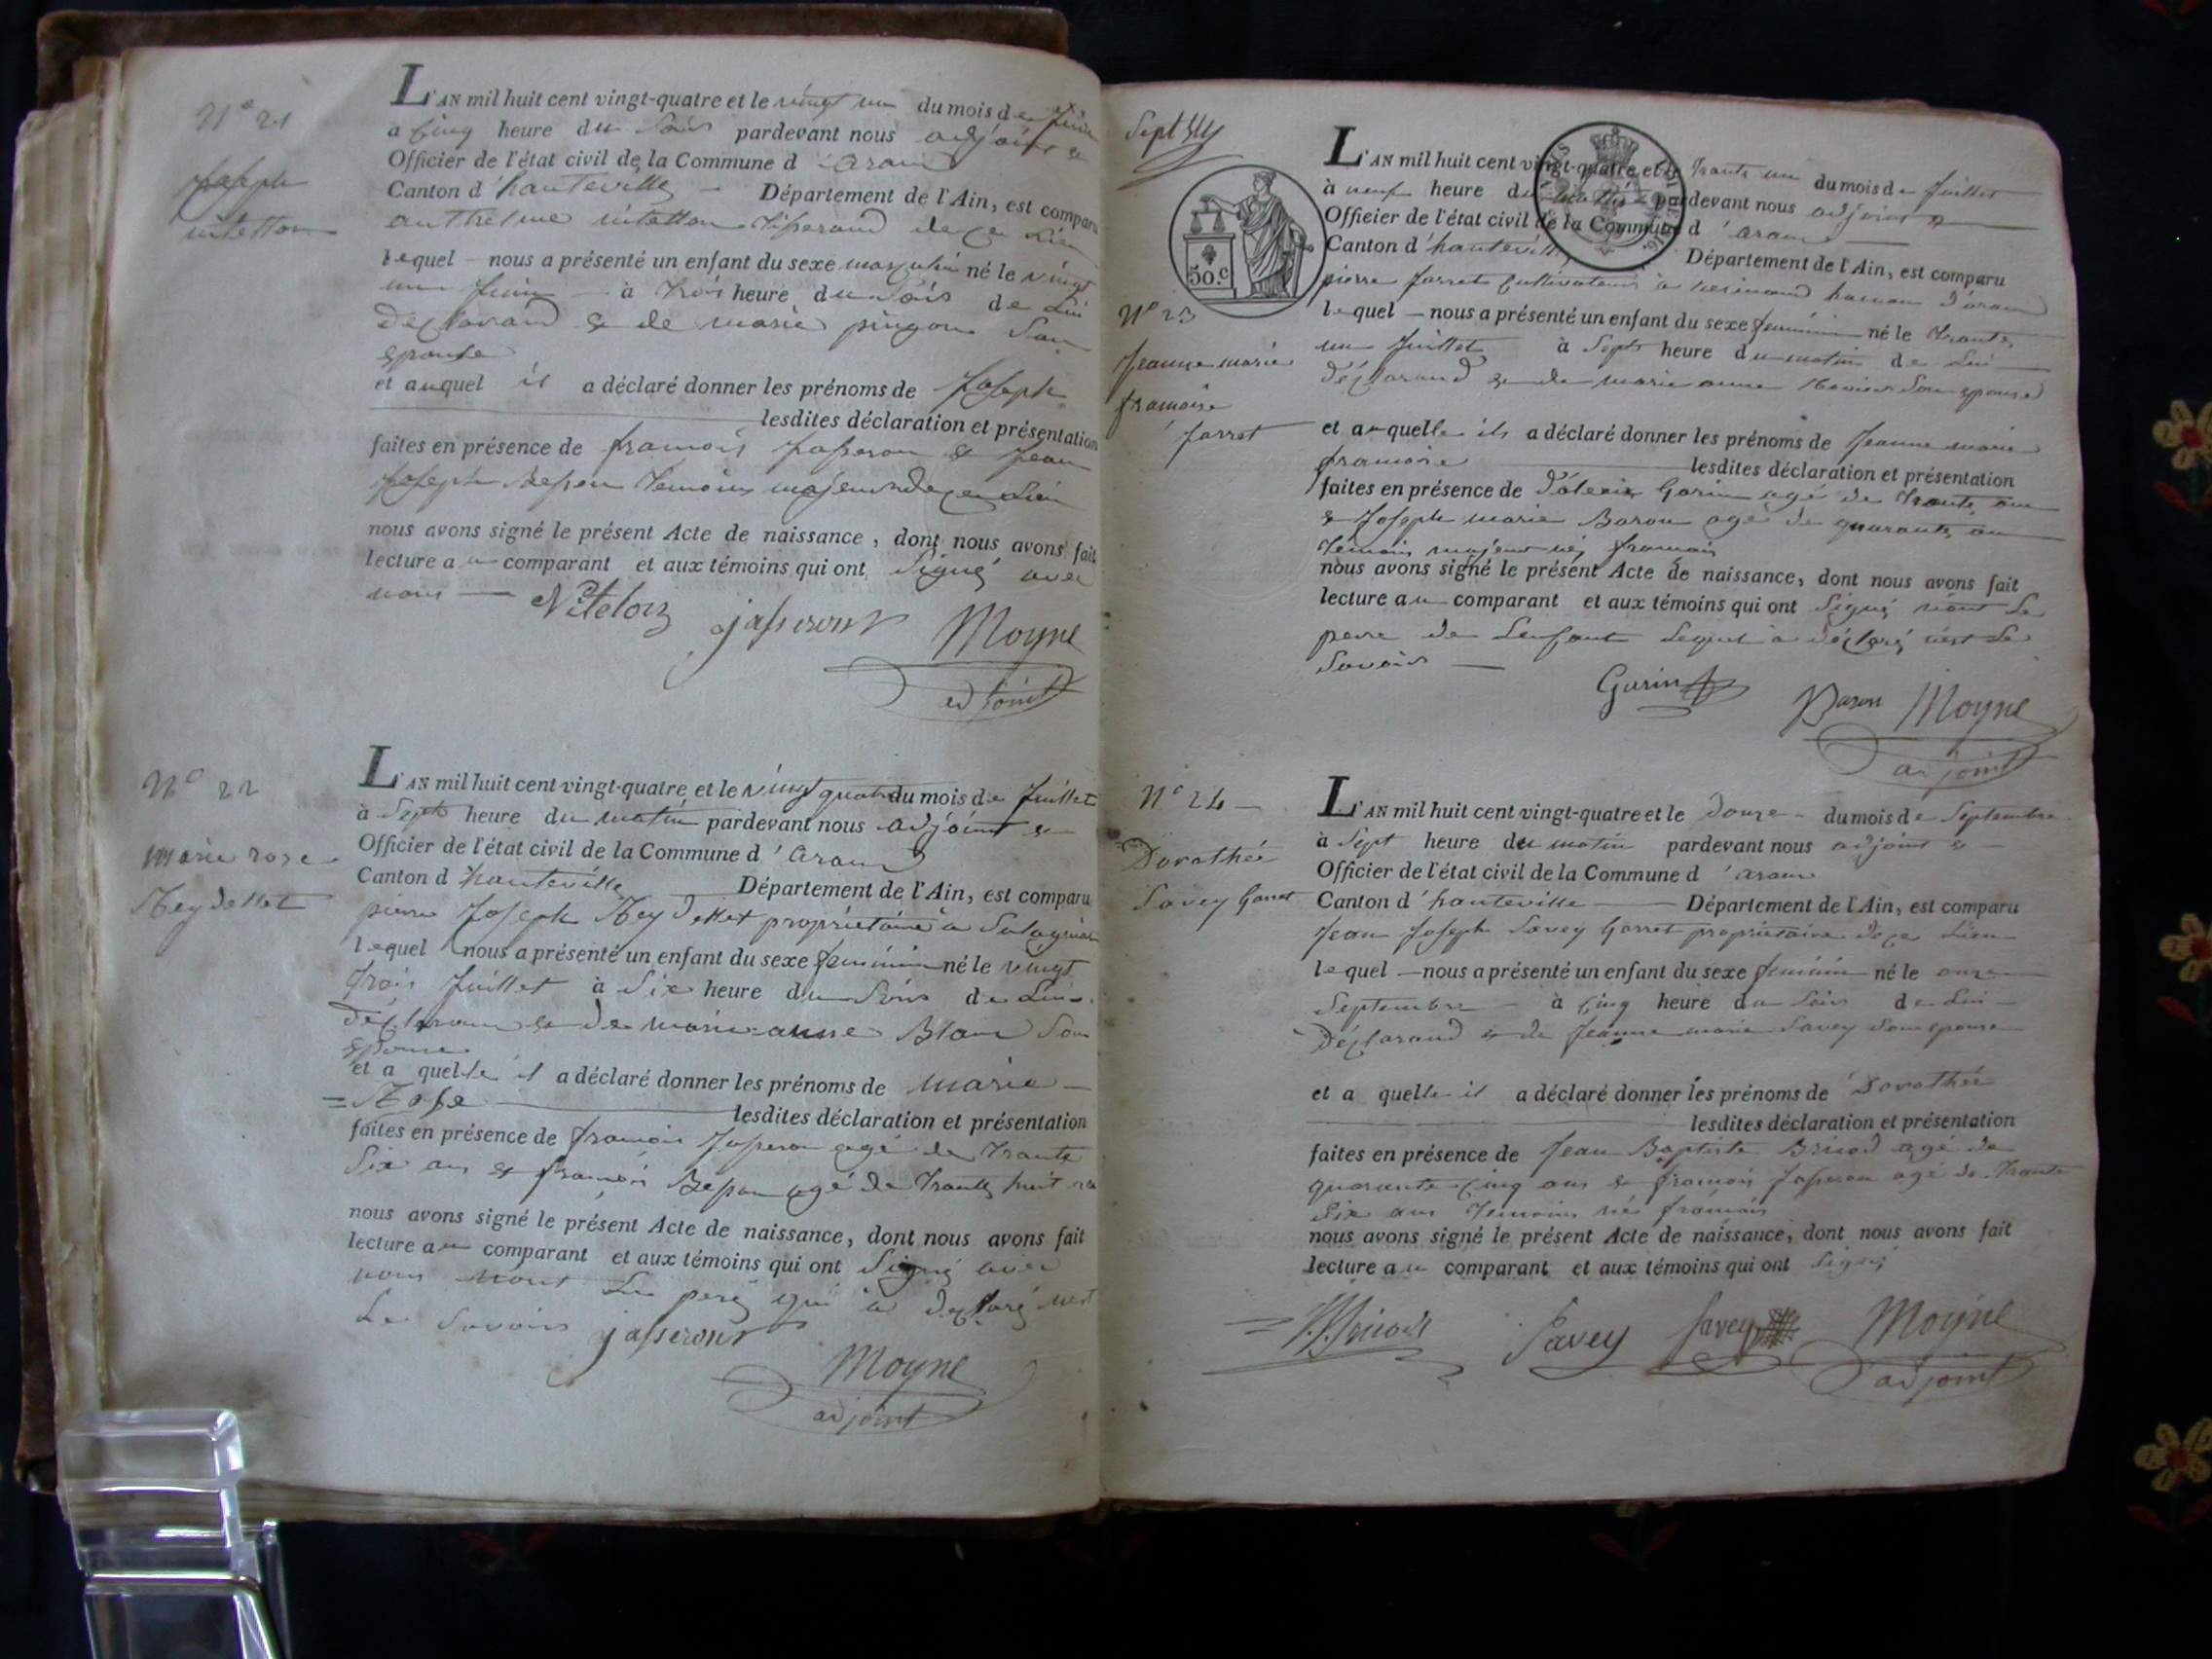 N° 21
Joseph
vitetton
L'AN mil huit cent vingt-quatre et le vingt un du mois de juin
à cinq heure du soir pardevant nous adjoint &
Officier de l'état civil de la Commune d'aranc
Canton d'hauteville Département de l'Ain, est comparu
anthelme vitetton tisserand de ce lieu
lequel nous a présenté un enfant du sexe masculin né le vingt
un juin à trois heure du soir de lui
déclarand & de marie pingon son
epouse
et auquel il a déclaré donner les prénoms de Joseph
lesdites déclaration et présentation
faites en présence de françois Jasseron & Jean
Joseph Besson temoins majeurs de ce lieu
nous avons signé le présent Acte de naissance, dont nous avons fait
lecture au comparant et aux témoins qui ont signé avec
nous
Jasseront Moyne
adjoint
N° 22
marie rose
Reydellet
L'AN mil huit cent vingt-quatre et le vingt quatre du mois de Juillet
à Sept heure du matin pardevant nous adjoint &
Officier de l'état civil de la Commune d'aranc
Canton d hauteville Département de l'Ain, est comparu
pierre Joseph Reydellet propriétaire à
lequel nous a présenté un enfant du sexe feminin né le vingt
trois Juillet à Six heure du Soir de Lui
déclarant & de marie anne Blanc Son
epouse
et a quelle il a déclaré donner les prénoms de marie
= Rose
lesdites déclaration et présentation
faites en présence de françois Jasseron agé de trante
Six ans & françois Besson agé de trante huit ans
nous avons signé le présent Acte de naissance, dont nous avons fait
lecture au comparant et aux témoins qui ont Signé avec
nous non Le pere qui a déclaré
Le Savoir Jasseront
Moyne
adjoint
Sept
50.c
N° 23
Jeanne marie
françoise
Jarret
L'AN mil huit cent vingt-quatre et le trante un du mois de Juillet
à neuf heure du matin pardevant nous adjoint &
Officier de l'état civil de la Commune d'aranc
Canton d'hauteville Département de l'Ain, est comparu
pierre Jarret cultivateur à hameau d'aranc
lequel nous a présenté un enfant du sexe feminin né le trante
un Juillet à Sept heure du matin de Lui
déclarand & de marie anne son epouse
et a quelle il a déclaré donner les prénoms de Jeanne marie
françoise
lesdites déclaration et présentation
faites en présence de d'alexis Garin agé de trante ans
& Joseph marie Baron agé de quarante ans
témoins majeur né français
nous avons signé le présent Acte de naissance, dont nous avons fait
lecture au comparant et aux témoins qui ont Signé non Le
pere de Lenfant Lequel a déclaré Le
Savoir
Garin Baron Moyne
adjoint
N° 24
Dorothée
Savey Garret
L'AN mil huit cent vingt-quatre et le Douze du mois de Septembre
à Sept heure du matin pardevant nous adjoint &
Officier de l'état civil de la Commune d'aranc
Canton d'hauteville Département de l'Ain, est comparu
Jean Joseph Savey Garret propriétaire de ce Lieu
lequel nous a présenté un enfant du sexe feminin né le onze
Septembre à cinq heure du Soir de Lui
Déclarand & de Jeanne marie Savey Son epouse
et a quelle il a déclaré donner les prénoms de Dorothée
lesdites déclaration et présentation
faites en présence de Jean Baptiste Bricod agé de
quarante cinq ans & françois Jasseron agé de trante
Six ans temoins né français
nous avons signé le présent Acte de naissance, dont nous avons fait
lecture au comparant et aux témoins qui ont Signé
Savey Savey Moyne
adjoint